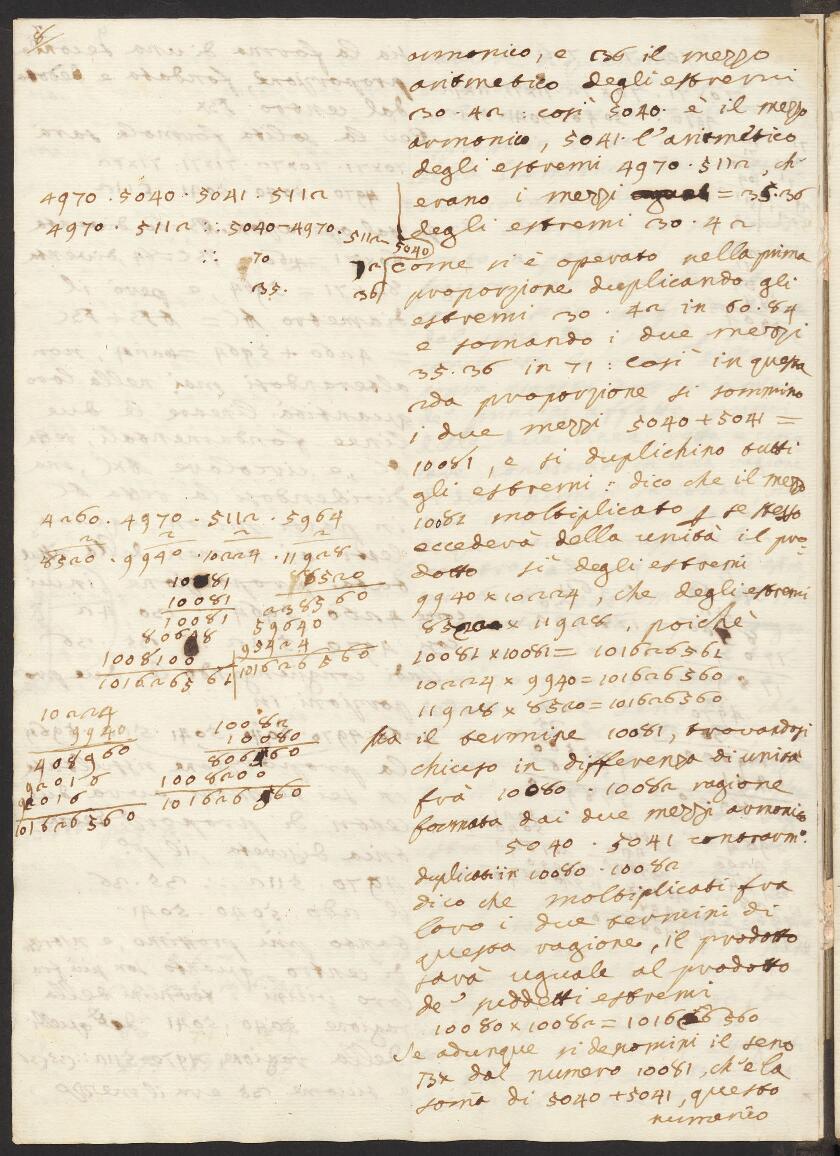 8
armonico, e 36 il mezzo
aritmetico degli estremi
30 · 42 : così 5040 · è il mezzo
armonico, 5041 · l'aritmetico
degli estremi 4970 · 5112, ch'
erano i mezzi = 35 · 36
degli estremi 30 · 42
come si è operato nella prima
proporzione duplicando gli
estremi 30 · 42 in 60 · 84
e somando i due mezzi
35 · 36 in 71 : così in questa
2da proporzione si sommino
i due mezzi 5040 + 5041 =
10081, e si duplichino tutti
gli estremi : dico che il mezzo
10081 moltiplicato p se stesso
eccederà della unità il pro-
dotto sì degli estremi
9940 × 10224, che degli estremi
8520 × 11928, poichè
10081 × 10081 = 101626561
10224 × 9940 = 101626560
11928 × 8520 = 101626560
sta il termine 10081, trovandosi
chiuso in differenza di unità
frà 10080 · 10082 ragione
formata dai due mezzi armonico
5040 · 5041 contrarm.º
duplicati in 10080 · 10082
dico che moltiplicati fra
loro i due termini di
questa ragione, il prodotto
sarà uguale al prodotto
de' suddetti estremi
10080 × 10082 = 101626560
Se adunque si denomini il seno
Bx dal numero 10081, ch'è la
soma di 5040 + 5041, questo
numero
4970 · 5040 · 5041 · 5112
4970 · 5112 :: 5040 - 4970 · 5112 - 5040
:: 70 72
35 · 36
4260 · 4970 · 5112 · 5964
2 2 2 2
8520 · 9940 · 10224 · 11928
10081
10081
10081
80648
1008100
101626561
8520
238560
59640
95424
101626560
10224
9940
408960
92016
92016
101626560
10082
10080
806560
1008200
101626560